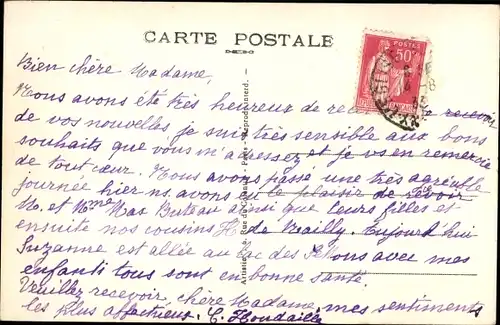 CARTE POSTALE
POSTES
50c
Bien chère Madame,
Nous avons été très heureux de recevoir
de vos nouvelles, je suis très sensible aux bons
souhaits que vous m'adressez et je vs en remercie
de tout cœur. Nous avons passé une très agréable
journée hier ns. avons eu le plaisir de revoir
M. et Mme Mas Buteau ainsi que leurs filles et
ensuite nos cousins de Mailly. Aujourd'hui
Suzanne est allée au lac des Settons avec mes
enfants tous sont en bonne santé.
Veuillez recevoir, chère Madame, mes sentiments
les plus affectueux. C. Houdaille